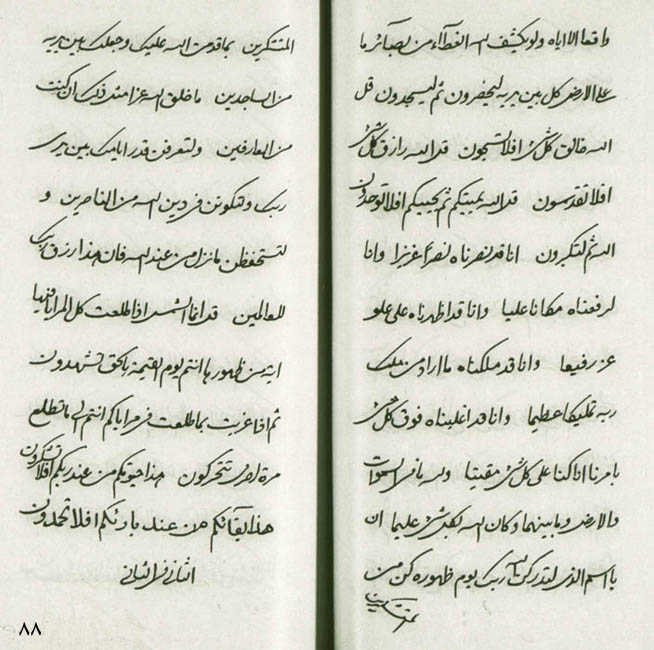 واقعا الا اياه ولو يكشف الله الغطآء من بصآئر ما
على الارض كل بين يديه ليحضرون ثم ليسجدون قل
الله خالق كل شئ افلا تسبحون قد الله رازق كل شئ
افلا تقدسون قد الله يميتكم ثم يحييكم افلا توحدون
الله ثم لتكبرون انا قد نصرناه نصرا عزيزا وانا
لرفعناه مكانا عليا وانا قد اظهرناه على علو
عز رفيعا وانا قد ملكناه ما اراد من ملك
ربه تمليكا عظيما وانا قد اغلبناه فوق كل شئ
بامرنا انا كنا على كل شئ مقيتا ولله ما فى السموات
والارض وما بينهما وكان الله بكل شئ عليما ان
يا اسم الذى لتدركن ربك يوم ظهوره كن من
المتشكرين
المتشكرين بما قد من الله عليك وجعلك بين يديه
من الساجدين ما خلق الله عزا مثل ذلك ان كنت
من العارفين ولتعرفن قدر ايامك بين يدى
ربك ولتكونن فى دين الله من الناصرين و
لتستحفظن ما نزل من عند الله فان هذا رزق ربك
للعالمين قد انما الشمس اذا طلعت كل المرايا فيها
اية من ظهورها انتم يوم القيمة بالحق لتشهدون
ثم اذا غربت بما طلعت فى مراياكم انتم الى ما تطلع
مرة اخرى تتحركون هذا حيوتكم من عند ربكم افلا تشكرون
هذا بقآئكم من عند بارئكم افلا تحمدون
الثانى فى الثانى
٨٨